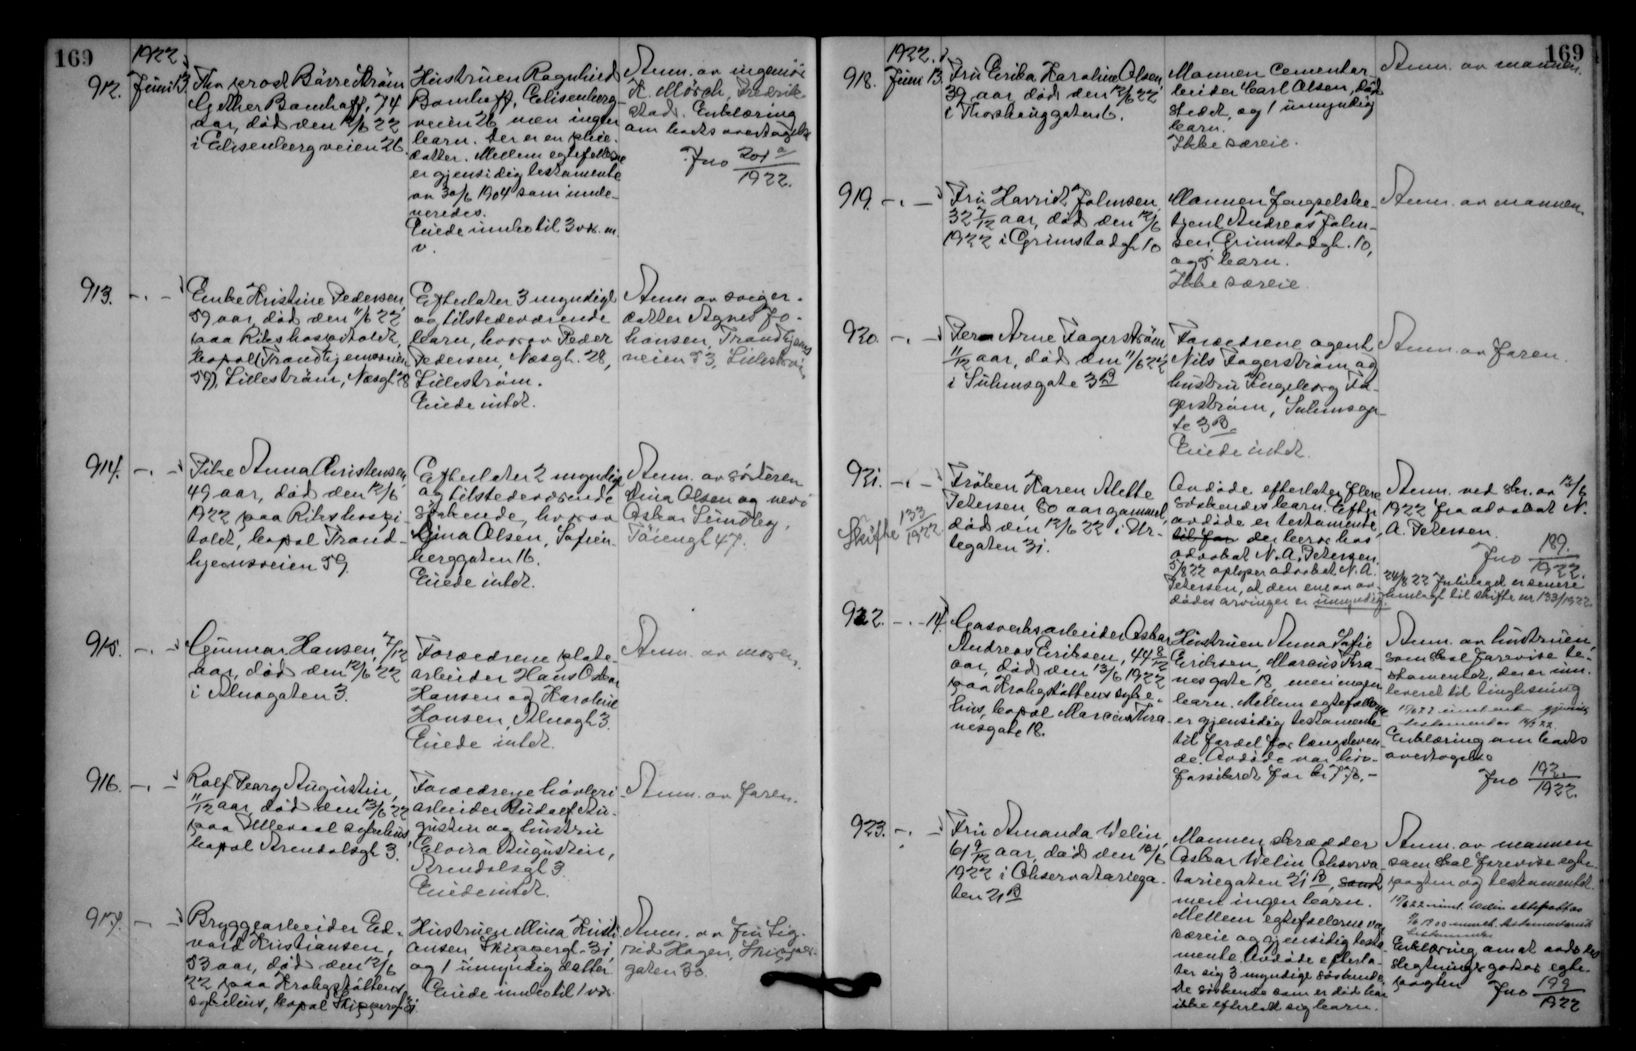 169
1922.
912. Juni 13. Fhv. prost Børre Strøm
Gether Bomhoff, 74
aar, død den 12/6 22
i Elisenbergveien 26.
Hustruen Ragnhild
Bomhoff, Elisenberg-
veien 26, men ingen
barn. Der er en pleie-
datter. Mellem egtefellene
er gjensidig testamente
av 30/6 1904 som
Eiede indbo til
v.
Anm. av ingeniør
K. Mørch, Fredrik-
stad. Erklæring
om boets overtagelse
Jno 201 a/1922.
913. -.- Enke Kristine Pedersen,
59 aar, død den 11/6 22
paa Rikshospitalet,
bopæl Trondhjemsveien
59, Lillestrøm, Næsgt. 28
Efterlater 3 myndige
og tilstedeværende
barn, hvorav Peder
Pedersen, Næsgt. 28,
Lillestrøm.
Eiede intet.
Anm. av sviger-
datter Agnes Jo-
hansen, Trondhjems
veien 53, Lillestrøm
914. -.- Pike Anna Christensen,
49 aar, død den 12/6
1922 paa Rikshospi-
talet, bopæl Trond-
hjemsveien 59.
Efterlater 2 myndige
og tilstedeværende
søskende, hvorav
Dina Olsen, Sofien-
berggaten 16.
Eiede intet.
Anm. av søsteren
Dina Olsen og nevø
Oskar Lundby,
Tøiengt. 47.
915. -.- Gunnar Hansen, 7/12
aar, død den 12/6 22
i Alnagaten 3.
Forældrene plate-
arbeider Hans Oskar
Hansen og Karoline
Hansen, Alnagt. 3.
Eiede intet.
Anm. av moren.
916. -.- Rolf Georg Augustin,
11/12 aar, død den 12/6 22
paa Ullevaal sykehus,
bopæl Arendalsgt. 3.
Forældrene høvleri-
arbeider Rudolf Au-
gustin og hustru
Elvira Augustin,
Arendalsgt. 3.
Eiede intet.
Anm. av faren.
917. -.- Bryggearbeider Ed-
vard Kristiansen,
53 aar, død den 12/6
22 paa Krohgstøttens
sykehus, bopæl Skippergt. 31
Hustruen Mina Kristi-
ansen, Skippergt. 31,
og 1 umyndig datter.
Eiede indbo til 1 v.k.
Anm. av fru Sig-
rid Hagen, Skipper-
gaten 33.
169
1922.
918. Juni 13. Fru Erika Karoline Olsen,
39 aar, død den 12/6 22
i Thorshauggaten 6.
Mannen cementar-
beider Carl Olsen, død-
stedet, og 1 umyndig
barn.
Ikke særeie.
Anm. av mannen.
919. -.- Fru Harriet Johnsen,
32 7/12 aar, død den 12/6
1922 i Grimstadgt. 10
Mannen fængselsbe-
tjent Andreas John-
sen, Grimstadgt. 10,
og barn.
Ikke særeie.
Anm. av mannen.
920. -.- Arne Fagerstrøm,
11/12 aar, død den 11/6 22
i Suhmsgate 3 B
Forældrene agent
Nils Fagerstrøm og
hustru Ingeborg Fa-
gerstrøm, Suhmsga-
te 3 B.
Eiede intet.
Anm. av faren.
921. -.- Frøken Karen Mette
Petersen, 80 aar gammel,
død den 12/6 22 i Ur-
tegaten 31.
Skifte 133/1922
Avdøde efterlater flere
søskendes barn. Efter
avdøde er testamente,
der beror hos
advokat N. A. Petersen.
5/8 22 oplyser advokat N. A.
Petersen, at den ene av av-
dødes arvinger er umyndig.
Anm. ved skr. av 12/6
1922 fra advokat N.
A. Petersen.
Jno 189./1922.
24/8 22 Jnbilaget er senere
omlagt til skifte nr 133/1922.
922. -.- 14. Gasverksarbeider Oskar
Andreas Eriksen, 44 8/12
aar, død den 13/6 1922
paa Krohgstøttens syke-
hus, bopæl Marcus Thra-
nesgate 18.
Hustruen Anna Sofie
Eriksen, Marcus Thra-
nesgate 18, men ingen
barn. Mellem egtefellene
er gjensidig testamente
til fordel for længstleven-
de. Avdøde var liv-
forsikret for kr.
Anm. av hustruen,
som skal forevise te-
stamentet, der er inn-
leveret til tinglysning
Erklæring om boets
overtagelse
Jno 193./1922.
923. -.- Fru Amanda Welin,
61 9/12 aar, død den 12/6
1922 i Observatoriega-
ten 21 B
Mannen skrædder
Oskar Welin, Observa-
toriegaten 21 B,
men ingen barn.
Mellem egtefellerne var
særeie og gjensidig testa-
mente. Avdøde efterla-
ter sig 3 myndige søskende.
De søskende som er død har
ikke efterlatt sig barn.
Anm. av mannen
som skal forevise egte-
pagten og testamentet.
Erklæring om at
egte-
pagten Jno 199/1922